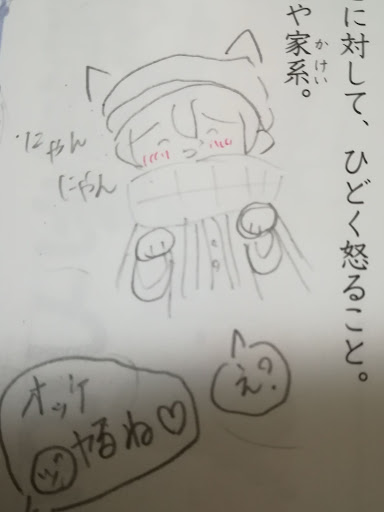 に対して、ひどく怒ること。
や家系。
かけい
にゃん
にゃん
え?
オッケ
やるね♡